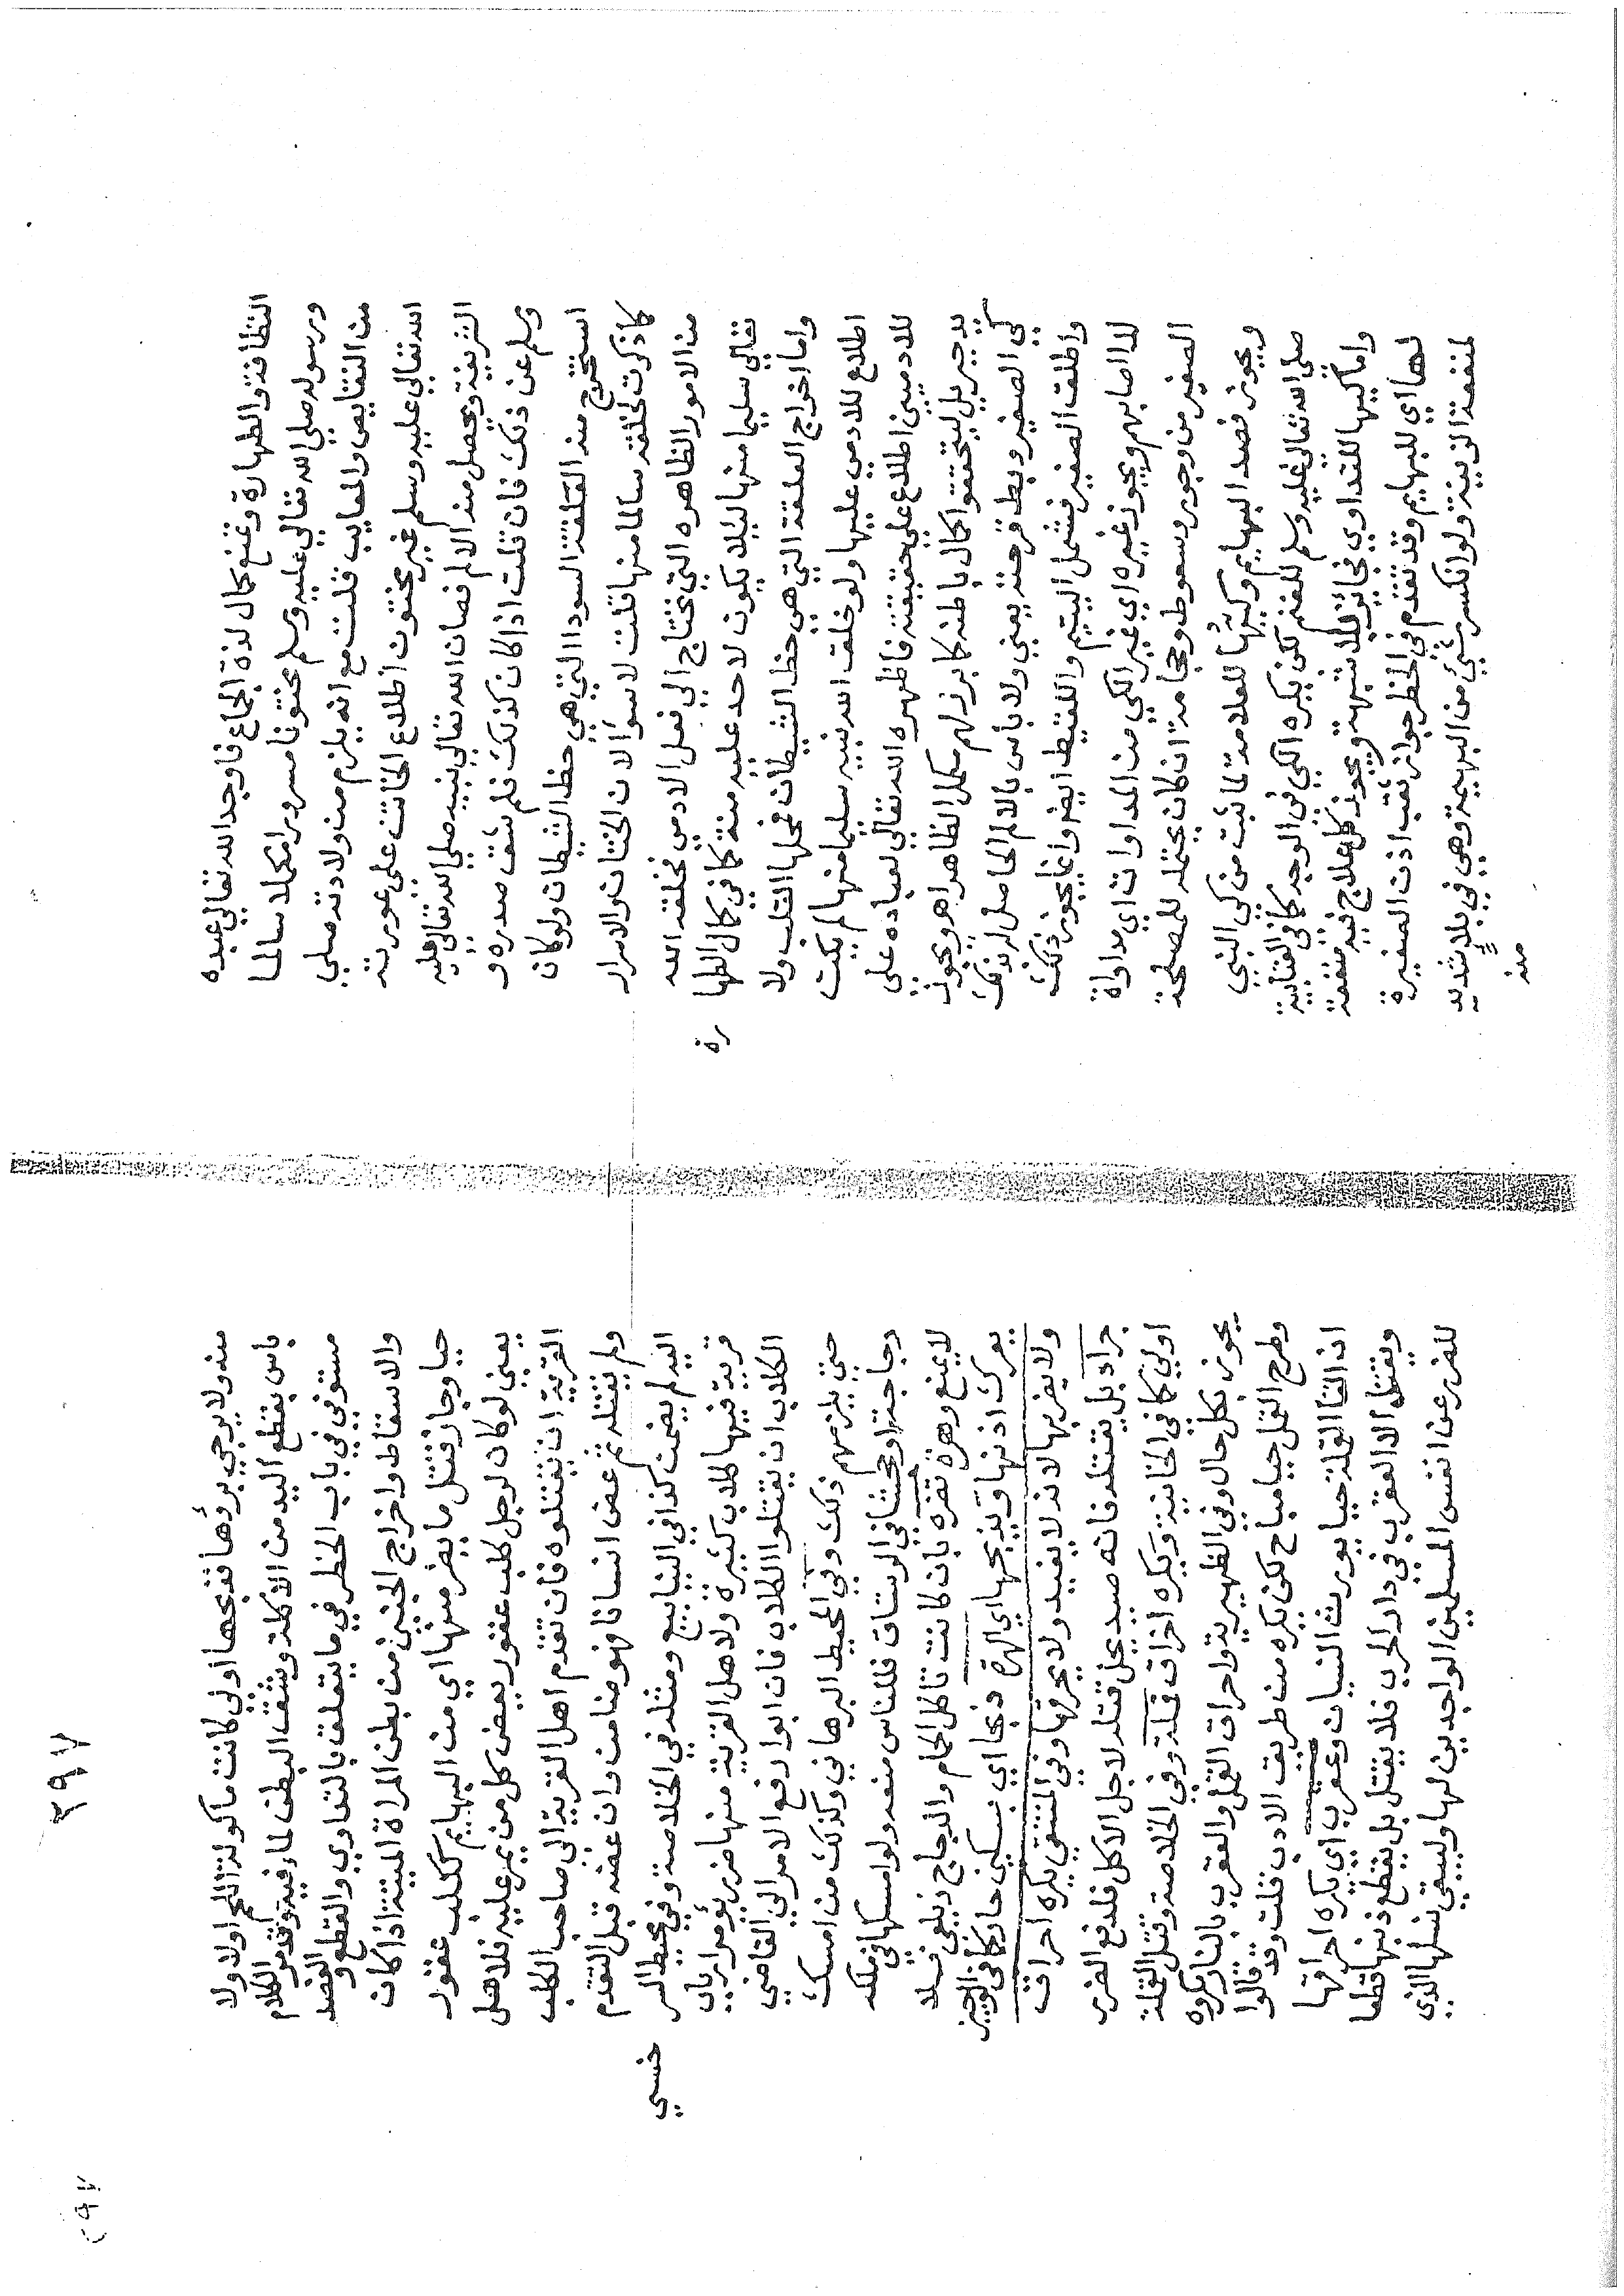 النظافة والطهارة وتمنع كمال لذة الجماع فاوجد الله تعالي عبده
ورسوله صلي الله تعالي عليه وسلم مختونا مسرورا مكملا سالما
من النقايص والمعايب قلت مع انه يلزم من ولادته صلي
الله تعالي عليه وسلم غير مختون اطلاع الخاتن علي عورته
الشريفة ويحصل منه الالم فصان الله تعالي نبيه صلي الله تعالي عليه
وسلم عن ذلك فان قلت اذا كان كذلك فلم شق صدره و
استخرج منه العلقة السودا التي هي حظ الشيطان ولو كان
كما ذكرت لخلقه سالما منها قلت لا سوآ لان الختان والاسرار
من الامور الظاهره التي تحتاج الي فعل الادمي فخلقه الله
تعالي سليما منها ليلا يكون لاحد عليه منة كما في كمال الطها رة
واما اخراج العلقة التي هي حظ الشيطان فمحلها القلب ولا
اطلاع للادمي عليها ولو خلق الله نبيه سليما منها لم يكن
للادميين اطلاع علي حقيقته فاظهره الله تعالي لعباده علي
يد جبريل ليتحققوا كمال باطنه كما برز لهم مكمل الظاهر اهـ ويجوز
كي الصغير وبط قرحته يعني ولا باس بالالم الحاصل له لذلك
واطلق الصغير فشمل اليتيم واللقيط ايضا وانما يجوز ذلك
ويجوز غيره اي غير الكي من المداوات اي مداواة
الصغير من وجور وسعوط وحجامة ان كان يحتمله للمصلحة
ويجوز فصد البهايم وكيّها للعلامة لما ثبت من كي النبي
صلي الله تعالي عليه وسلم للغنم لكن يكره الكي في الوجه كما في العتابية
واما كيها للتداوي فجائز بلا شبهة ويجوز كل علاج فيه منفعة
لها اي للبهايم وقد تقدم في الحظر جواز ثقب اذن الصغيرة
لمنفعة الزينة ولو انكسر شيئ من البهيمة وهي في بلاء شديد
منه
٢٩٧
منه ولا يرجي برؤها فذبحها اولي كانت ماكولة اللحم اولا ولا
باس بقطع اليد من الاكلة وشق البطن لما فيه وقد مر الكلام
مستوفي في باب الحظر في ما يتعلق بالتداوي والقطع والفصد
والاسقاط واخراج الجنين من بطن المراة الميتة اذا كان
حيا وجاز قتل ما يضر منها اي من البهايم ككلب عقور
يعني لو كان لرجل كلب عقور يعض كل من يمر عليه فلاهل
القرية ان يقتلوه فان تقدم اهل القرية الي صاحب الكلب
ولم يقتله ثم عض انسانا فهو ضامن وان عضه قبل التقدم
اليه لم يضمن كذا في الينابيع ومثله في الخلاصة وفي محيط السر خسي
قرية فيها كلاب كثيرة ولاهل القرية منها ضرر يؤمر ارباب
الكلاب ان يقتلوا الكلاب فان ابوا رفع الامر الي القاضي
حتي يلزمهم ذلك وفي المحيط البرهاني وكذلك من امسك
دجاجة او جحشا في الرستاق فللناس منعه ولو امسكها في ملكه
لا يمنع وهرة تضره بان كانت تاكل الحمام والدجاج ذبلعي فلا
يعرك اذنها ويذبحها اي الهرة ذبحا اي بسكين حاد كما في الوجيز
ولا يضربها لانه لا يفيد ولا يحرقها وفي المنتقي يكره احراق
جراد بل يقتله فانه صيد يحل قتله لاجل الاكل فلدفع الضرر
اولي كما في الخانية ويكره احراق قملة وفي الخلاصة وقتل القملة
يجوز بكل حال وفي الظهيرية واحراق القمل والعقرب بالنار مكروه
وطرح القمل حيا مباح لكن يكره من طريق الادب قلت وقد قالوا
ان القا القملة حيا يورث النسيان وعقرب اي يكره احراقها
ويقتل الا العقرب في دار الحرب فلا يقتل بل يقطع ذنبها قطعا
للضرر عن انفس المسلمين الواجدين لها وليبقي نسلها الذي
٢٩٧